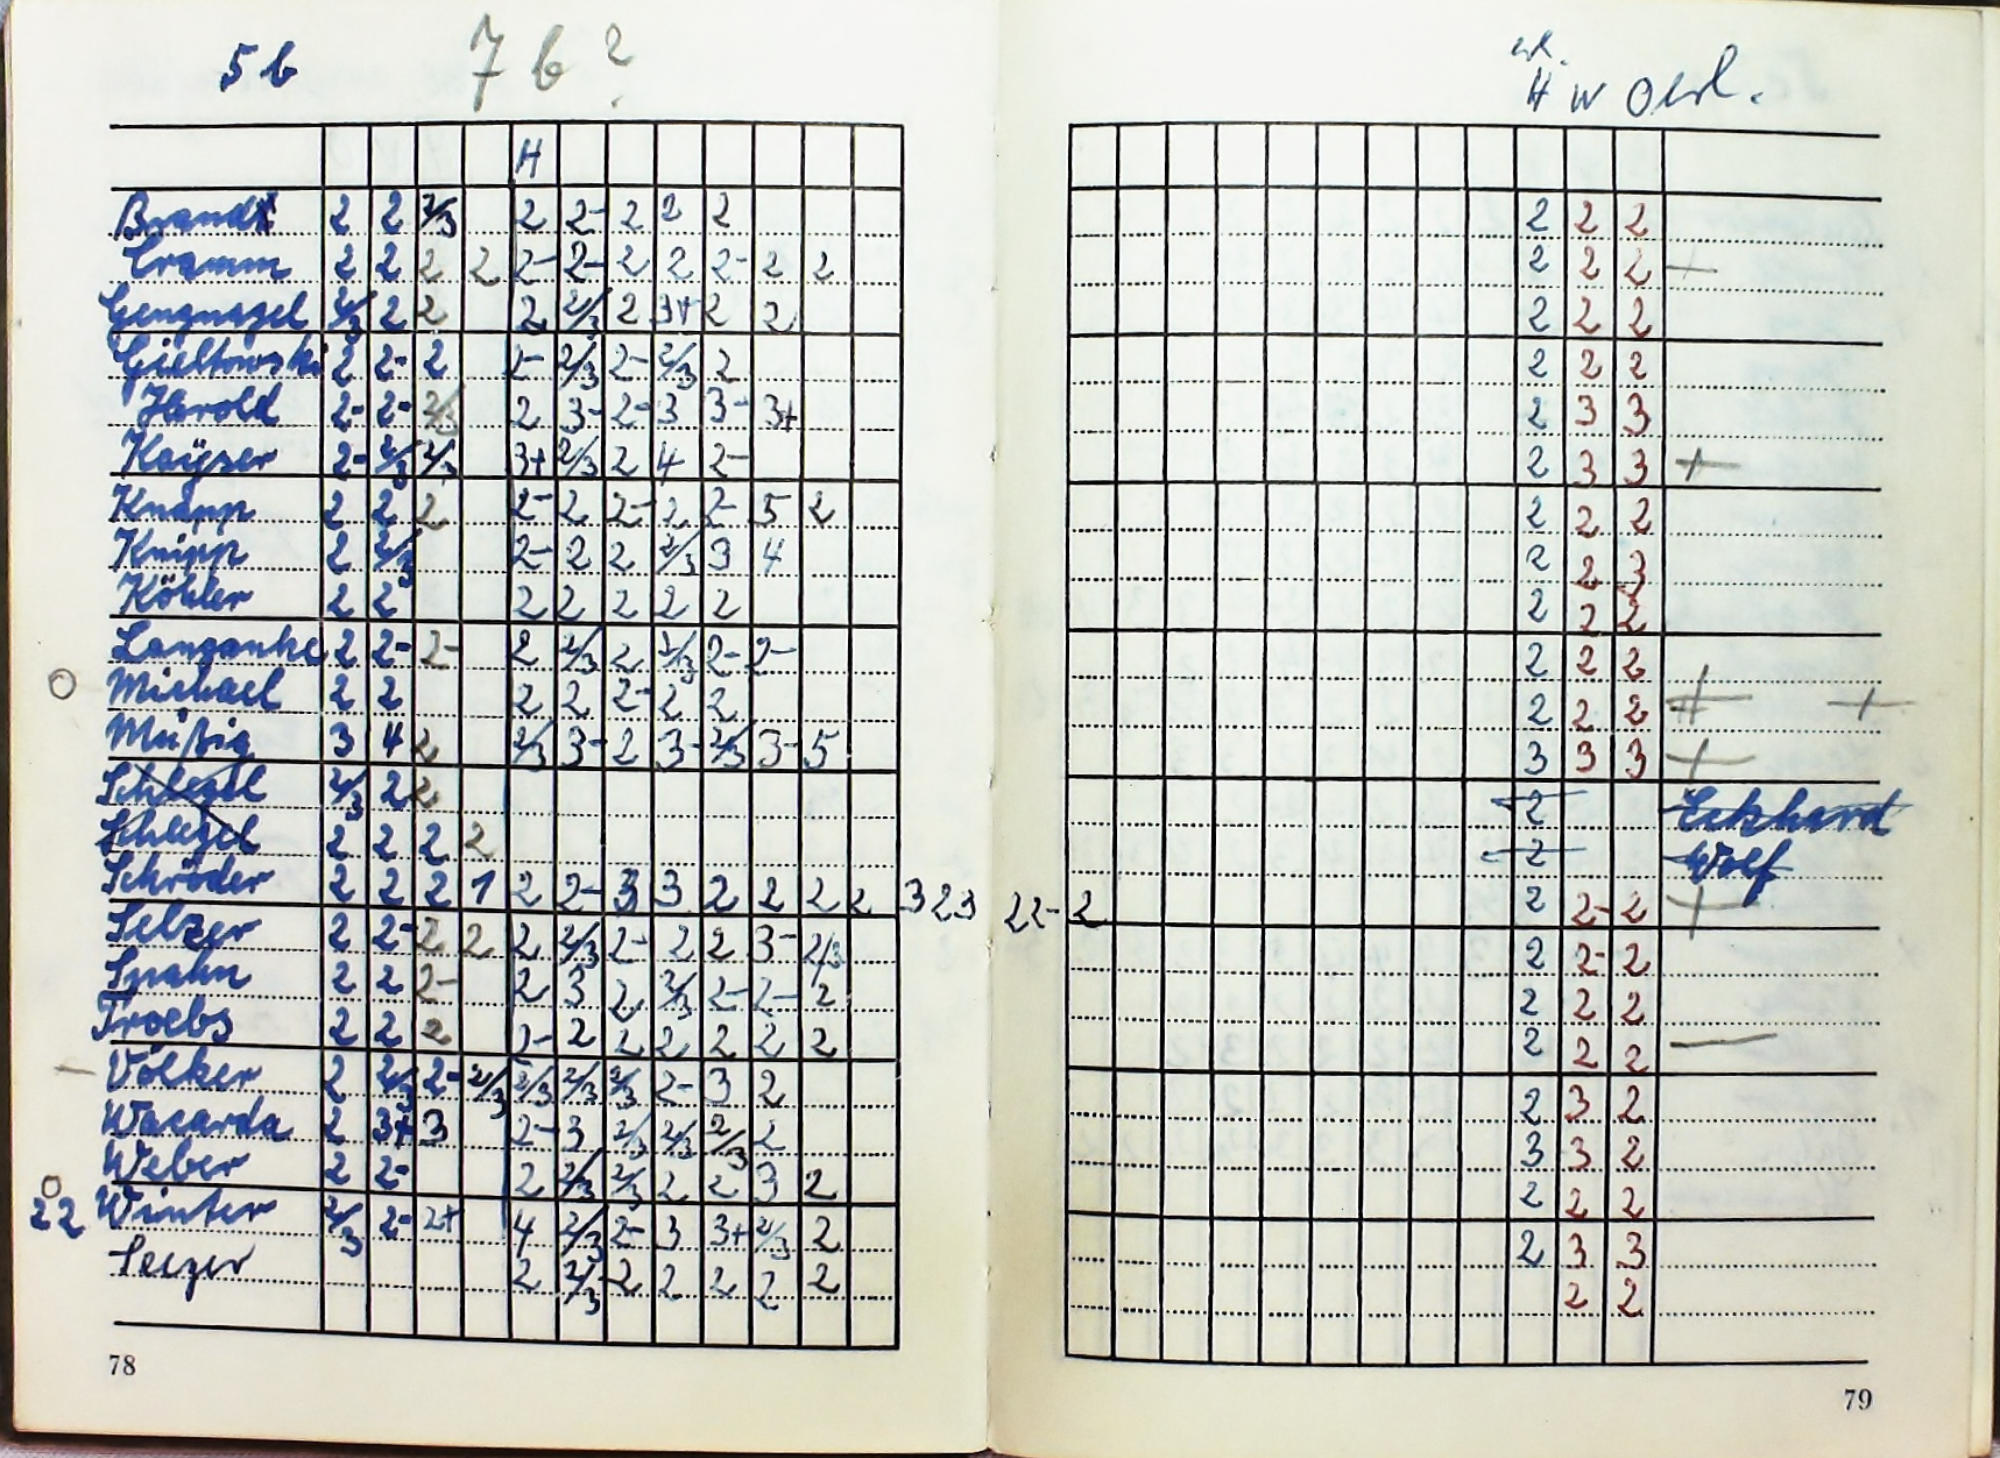 5b 7b?
H
Brandt 2 2 2/3 2 2- 2 2 2
Cramm 2 2 2 2 2- 2- 2 2 2- 2 2
Gengnagel 2/3 2 2 2 2/3 2 3+ 2 2
Gieltowski 2 2- 2 2- 2/3 2- 2/3 2
Harold 2- 2- 2/3 2 3- 2- 3 3- 3+
Kayser 2- 2/3 2/3 3+ 2/3 2 4 2-
Knapp 2 2 2 2- 2 2- 2 2- 5 2
Knipp 2 2/3 2- 2 2 2/3 3 4
Köhler 2 2 2 2 2 2 2
Langanke 2 2- 2- 2 2/3 2 2/3 2- 2-
O Michael 2 2 2 2 2- 2 2
Müßig 3 4 2 2/3 3- 2 3- 2/3 3- 5
Schlegel 2/3 2 2
Schlegel 2 2 2 2
Schröder 2 2 2 1 2 2- 3 3 2 2 2 2 3 2 3
Selzer 2 2- 2 2 2 2/3 2- 2 2 3- 2/3
Spahn 2 2 2- 2 3 2 2/3 2- 2- 2
Troebs 2 2 2 2- 2 2 2 2 2 2
- Völker 2 2/3 2- 2/3 2/3 2/3 2/3 2- 3 2
Wacarda 2 3+ 3 2- 3 2/3 2/3 2/3 2
Weber 2 2- 2 2/3 2/3 2 2 3 2
O
22 Winter 2/3 2- 2+ 4 2/3 2- 3 3+ 2/3 2
Seezer 2 2/3 2 2 2 2 2
78
H W Oerl.
2 2 2
2 2 2 +
2 2 2
2 2 2
2 3 3
2 3 3 +
2 2 2
2 2 3
2 2 2
2 2 2
2 2 2 + +
3 3 3 +
2 Eckhard
2 Wolf
2 2- 2 2 2- 2 +
2 2- 2
2 2 2
2 2 2 -
2 3 2
3 3 2
2 2 2
2 3 3
2 2
79